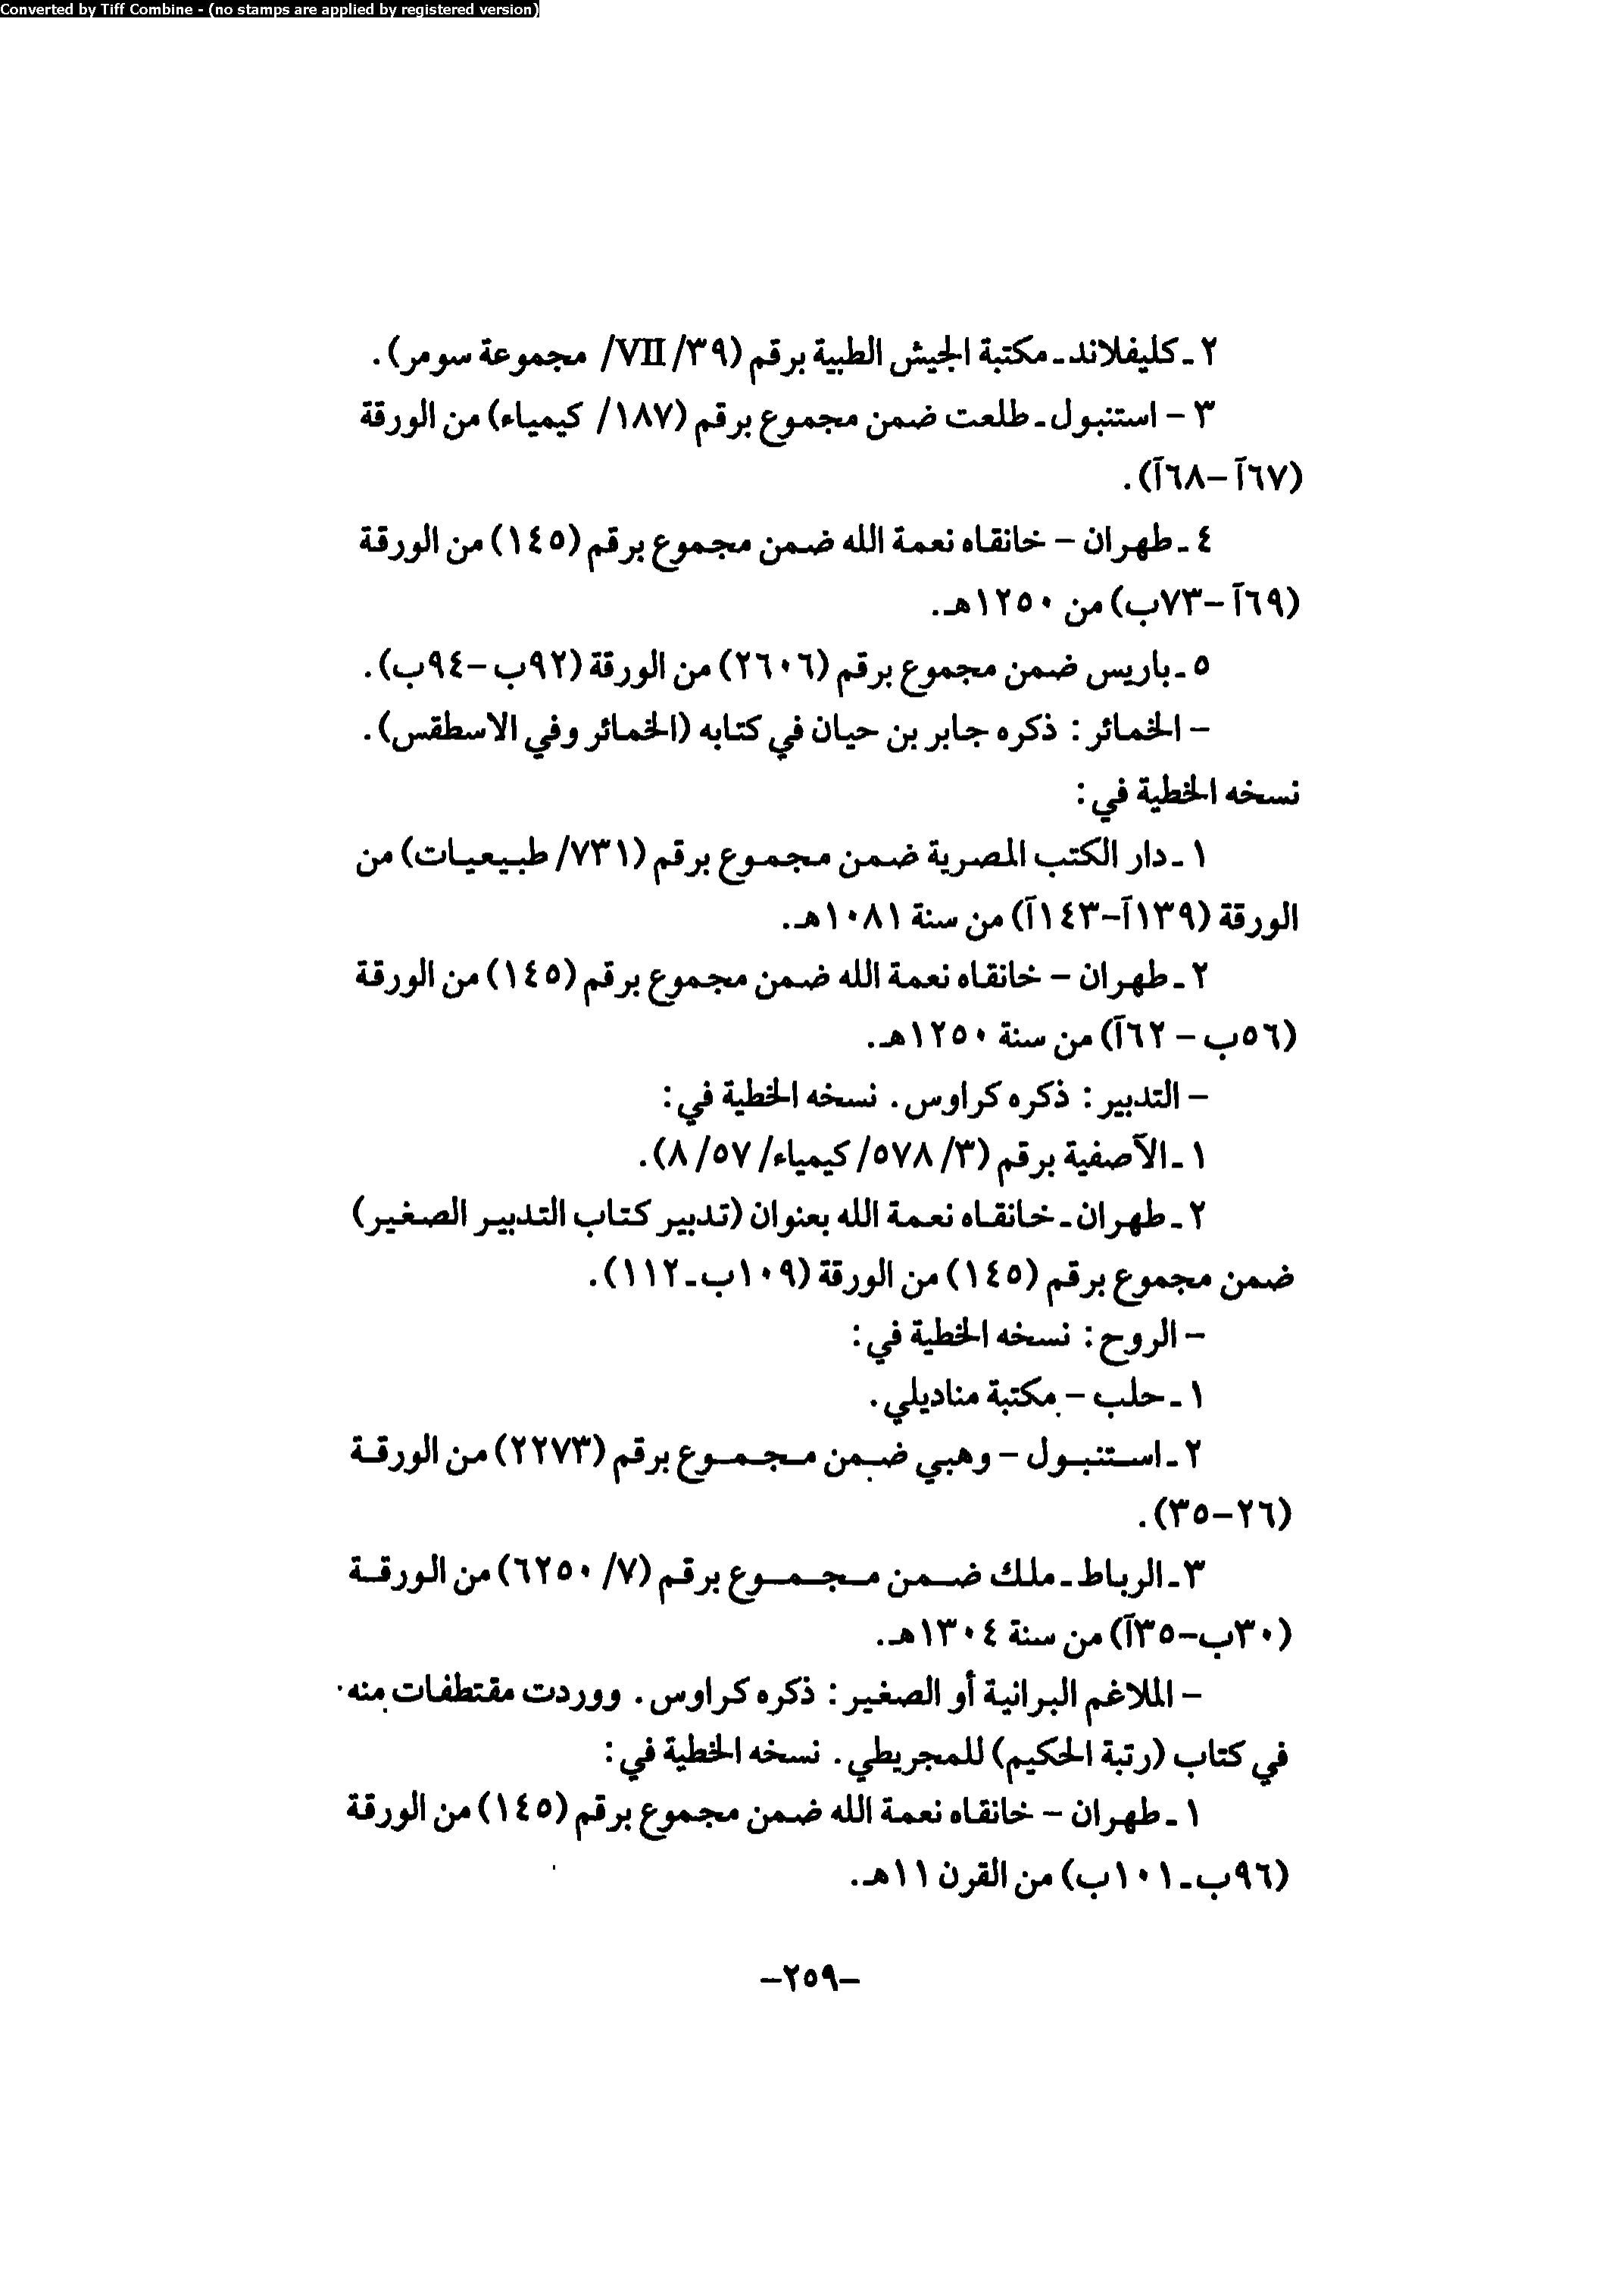 Converted by Tiff Combine - (no stamps are applied by registered version)
٢ ـ كليفلاند ـ مكتبة الجيش الطبية برقم (٣٩/ VII/ مجموعة سومر).
٣ - استنبول ـ طلعت ضمن مجموع برقم (١٨٧/ كيمياء) من الورقة
(٦٧آ - ٦٨آ).
٤ ـ طهران - خانقاه نعمة الله ضمن مجموع برقم (١٤٥) من الورقة
(٦٩آ - ٧٣ب) من ١٢٥٠هـ.
٥ ـ باريس ضمن مجموع برقم (٢٦٠٦) من الورقة (٩٢ب - ٩٤ب).
- الخمائر : ذكره جابر بن حيان في كتابه (الخمائر وفي الاسطقس).
نسخه الخطية في :
١ ـ دار الكتب المصرية ضمن مجموع برقم (٧٣١/ طبيعيات) من
الورقة (١٣٩آ-١٤٣آ) من سنة ١٠٨١هـ.
٢ ـ طهران - خانقاه نعمة الله ضمن مجموع برقم (١٤٥) من الورقة
(٥٦ب - ٦٢آ) من سنة ١٢٥٠هـ.
- التدبير : ذكره كراوس . نسخه الخطية في :
١ ـ الآصفية برقم (٣/ ٥٧٨/ كيمياء/ ٥٧/ ٨).
٢ ـ طهران ـ خانقاه نعمة الله بعنوان (تدبير كتاب التدبير الصغير)
ضمن مجموع برقم (١٤٥) من الورقة (١٠٩ب ـ ١١٢).
- الروح : نسخه الخطية في :
١ ـ حلب - مكتبة مناديلي .
٢ ـ استنبول - وهبي ضمن مجموع برقم (٢٢٧٣) من الورقة
(٢٦-٣٥).
٣ ـ الرباط ـ ملك ضمن مجموع برقم (٧/ ٦٢٥٠) من الورقة
(٣٠ب-٣٥آ) من سنة ١٣٠٤هـ.
- الملاغم البرانية أو الصغير : ذكره كراوس . ووردت مقتطفات منه
في كتاب (رتبة الحكيم) للمجريطي . نسخه الخطية في :
١ ـ طهران - خانقاه نعمة الله ضمن مجموع برقم (١٤٥) من الورقة
(٩٦ب ـ ١٠١ب) من القرن ١١هـ.
-٢٥٩-